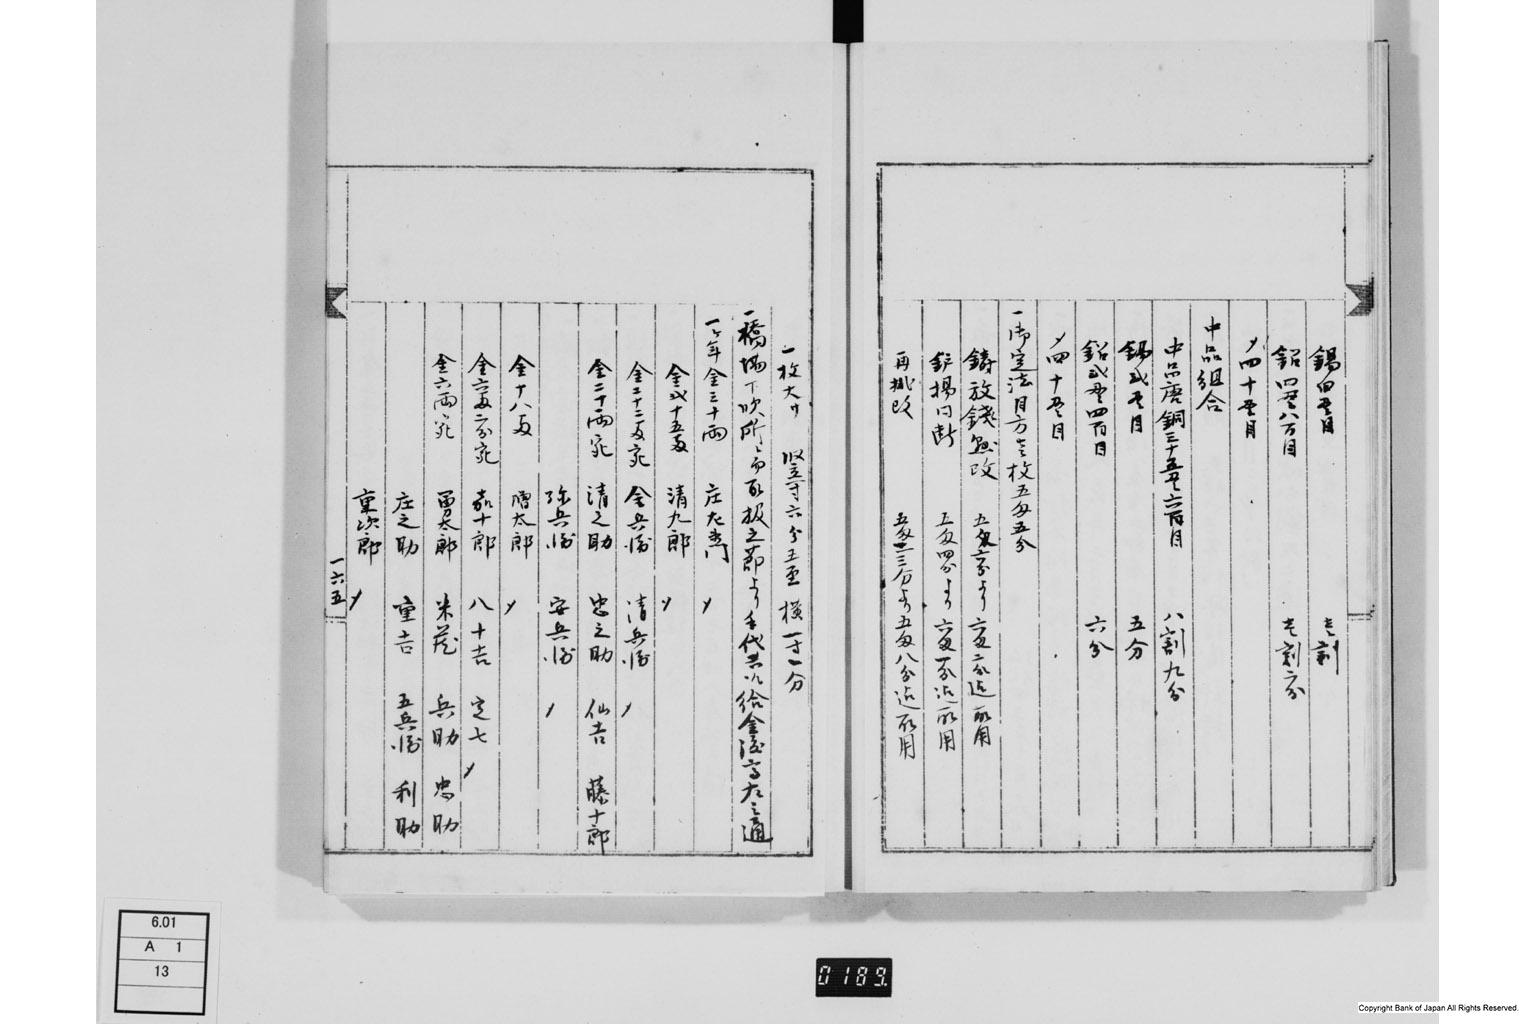 錫四貫目 壱割
鉛四貫八百目 壱割二分
〆四十貫目
中品組合
中品唐銅三十五貫六百目 八割九分
錫弐貫目 五分
鉛弐貫四百目 六分
〆四十貫目
一御定法目方壱枚五匁五分
鋳放銭無改 五匁六分より六匁二分迄取用
鈩揚同断 五匁四分より六匁一分迄取用
再挑改 五匁三分より五匁八分迄取用
一枚大サ 竪壱寸六分五厘 横一寸一分
一橋場下吹所ニ而取扱之節より手代共江給金渡高左之通
一ケ年金三十両 庄左衛門 〆
金弐十五両 清九郎 〆
金二十二両宛 金兵衛 清兵衛 〆
金二十両宛 清之助 忠之助 仙吉 藤十郎
弥兵衛 安兵衛 〆
金十八両 太郎 〆
金六両二分宛 嘉十郎 八十吉 定七 〆
金六両宛 勇太郎 米蔵 兵助 忠助
庄之助 重吉 五兵衛 利助
重次郎 〆
一六五
6.01
A 1
13
0189.
Copyright Bank of Japan All Rights Reserved.